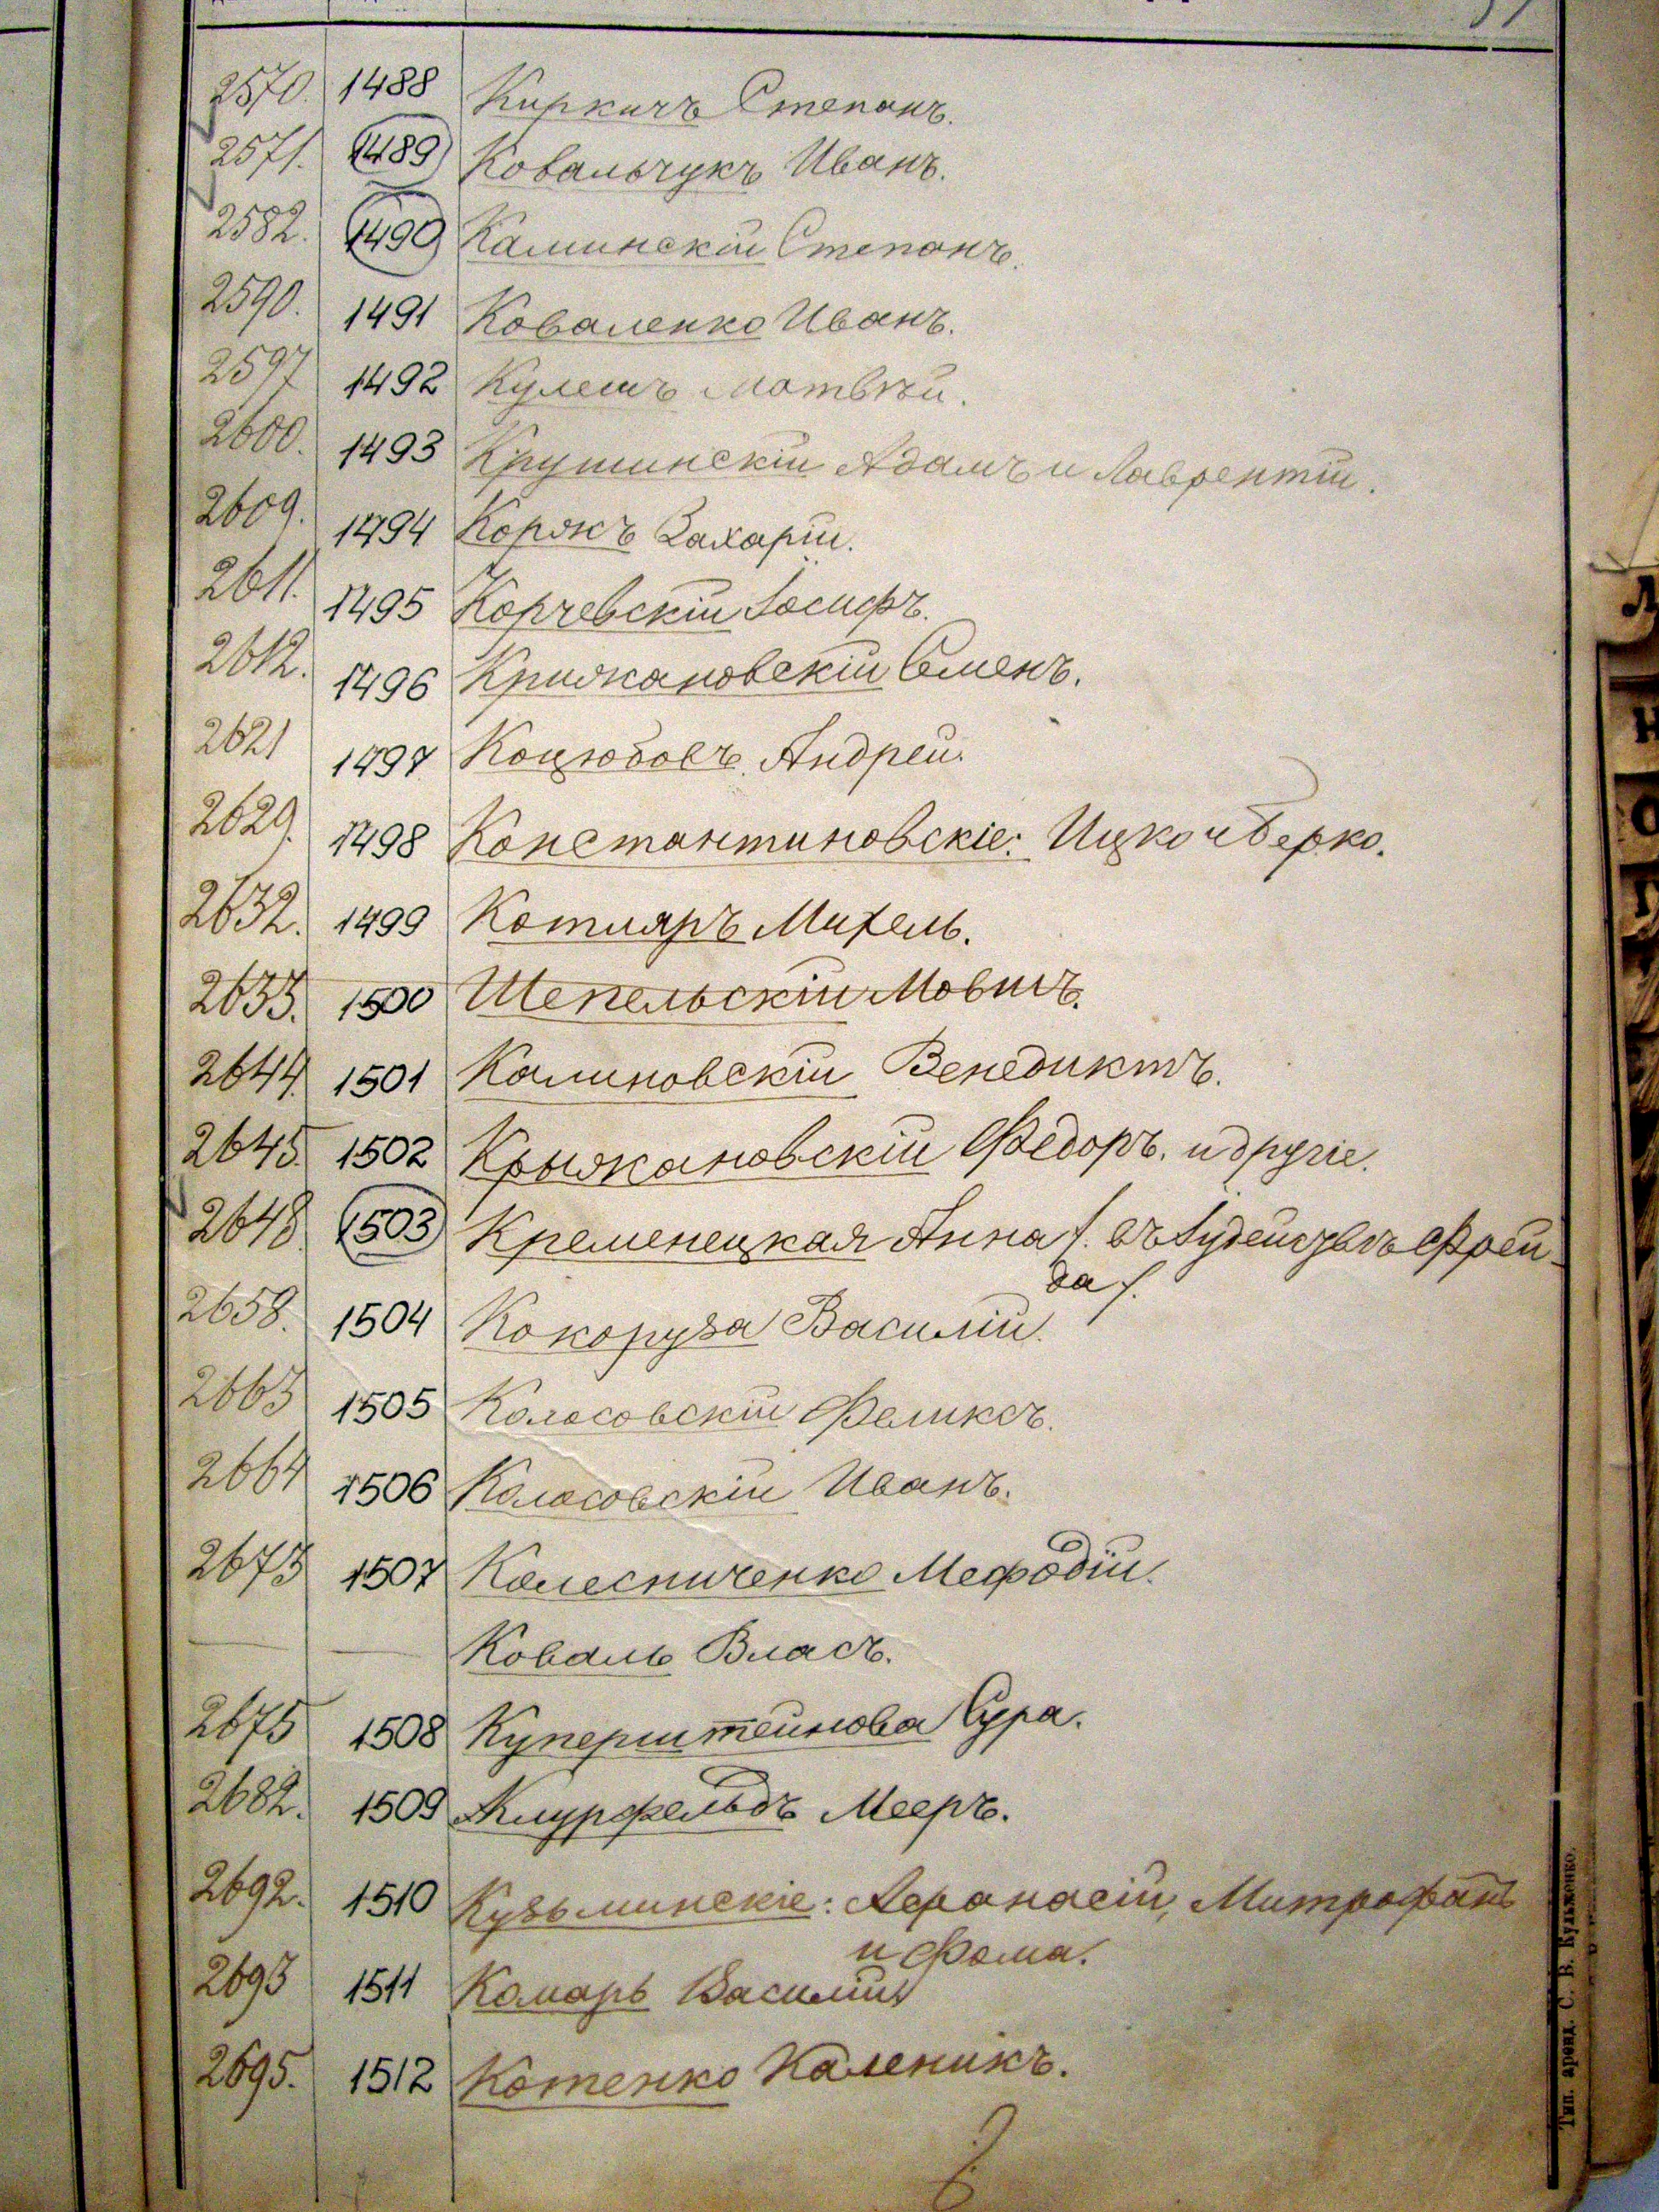 2570. 1488 Киркичъ Степанъ.
2571. 1489 Ковальчукъ Иванъ.
2582. 1490 Каминскій Степанъ.
2590. 1491 Коваленко Иванъ.
2597 1492 Кулешъ Матвѣй.
2600. 1493 Крушинскій Адамъ и Лаврентій.
2609. 1494 Коржъ Захарій.
2611. 1495 Корчевскій Іосифъ.
2612. 1496 Крижановскій Семенъ.
2621 1497 Коцюбовъ Андрей.
2629. 1498 Константиновскіе: Ицко и Берко.
2632. 1499 Котляръ Михель.
2633. 1500 Шепельскій Мовшъ.
2644. 1501 Калиновскій Венедиктъ.
2645. 1502 Крыжановскій Федоръ. и другіе.
2648 1503 Кременецкая Анна /. въ Іудействѣ Фрей-
да /.
2658. 1504 Кокоруза Василій.
2663 1505 Колосовскій Феликсъ.
2664 1506 Колосовскій Иванъ.
2673 1507 Колесниченко Мефодій.
Коваль Власъ.
2675 1508 Куперштейнова Сура.
2682. 1509 Клурфельдъ Мееръ.
2692. 1510 Кузьминскіе: Афанасій, Митрофанъ
и Фома.
2693 1511 Комаръ Василій
2695. 1512 Котенко Каленикъ.
Тип. аренд. С. В. Кульженко.
Л
Н
О
Г